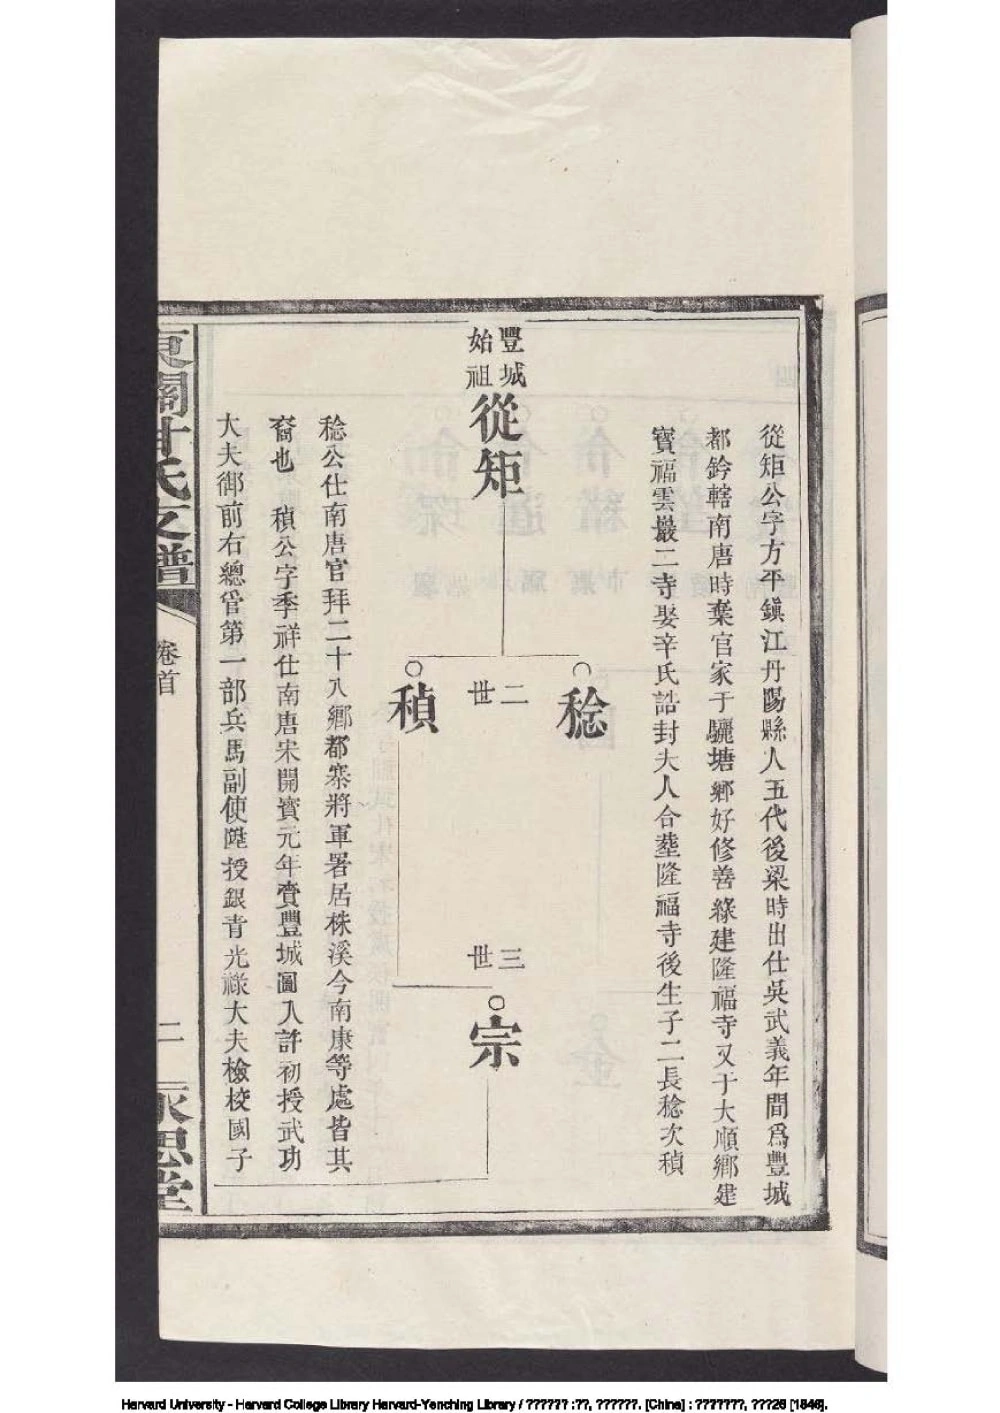 從矩公字方平鎮江丹陽縣人五代後梁時出仕吳武義年間爲豐城
都鈐轄南唐時棄官家于驪塘鄉好修善緣建隆福寺又于大順鄉建
寶福雲巖二寺娶辛氏誥封夫人合塟隆福寺後生子二長稔次稹
豐城
始祖
從矩
二世
稔
稹
三世
宗
稔公仕南唐官拜二十八鄉都寨將軍署居株溪今南康等處皆其
裔也 稹公字季祥仕南唐宋開寶元年賫豐城圖入許初授武功
大夫御前右總管第一部兵馬副使陞授銀青光祿大夫檢校國子
東關甘氏支譜
卷首
二
永思堂
Harvard University - Harvard College Library Harvard-Yenching Library / ?????? :??, ??????. [China] : ???????, ???26 [1846].